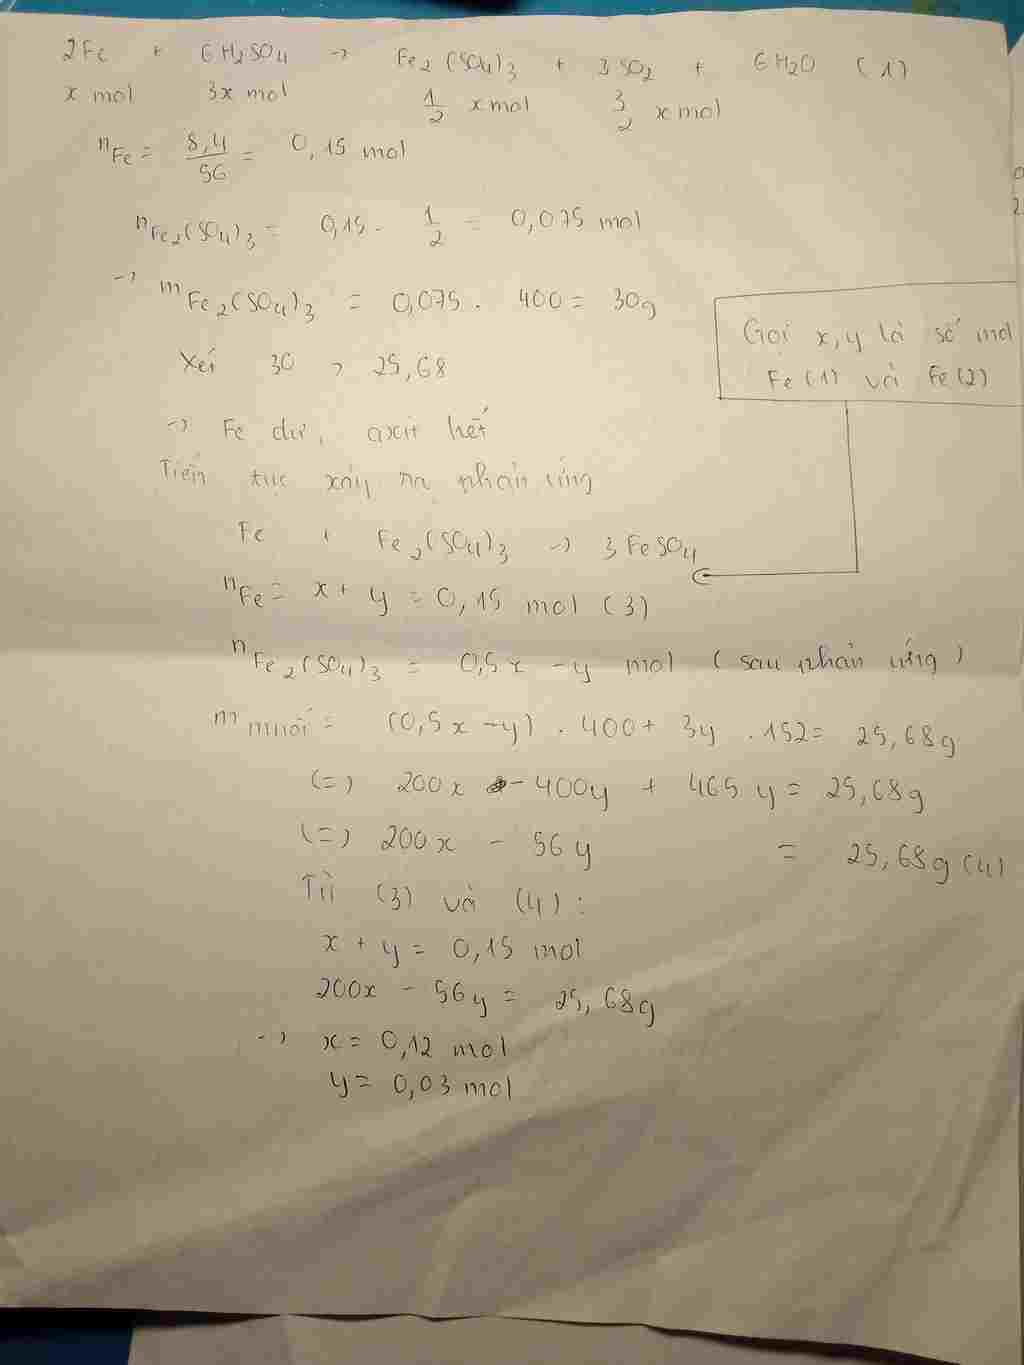 2Fe + 6H2SO4 → Fe2(SO4)3 + 3SO2 + 6H2O (1)
x mol 3x mol 1/2 x mol 3/2 x mol
nFe = 8,4/56 = 0,15 mol
nFe2(SO4)3 = 0,15 . 1/2 = 0,075 mol
→ mFe2(SO4)3 = 0,075 . 400 = 30g
Xét 30 > 25,68
→ Fe dư, axit hết
Tiếp tục xảy ra phản ứng
Fe + Fe2(SO4)3 → 3FeSO4
Gọi x, y là số mol
Fe (1) và Fe (2)
nFe = x + y = 0,15 mol (3)
nFe2(SO4)3 = 0,5x - y mol (sau phản ứng)
mmuối = (0,5x - y) . 400 + 3y . 152 = 25,68g
(=) 200x - 400y + 465y = 25,68g
(=) 200x - 56y = 25,68g (4)
Từ (3) và (4) :
x + y = 0,15 mol
200x - 56y = 25,68g
→ x = 0,12 mol
y = 0,03 mol